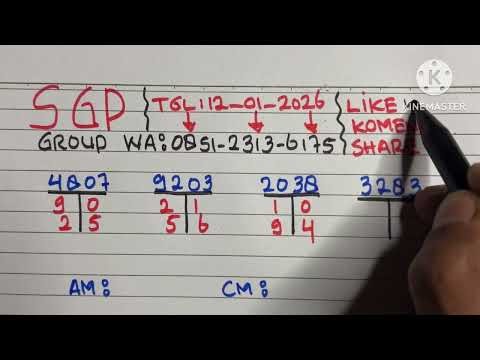 SGP TGL: 12-01-2026 LIKE
KINEMASTER
KOMEN
GROUP WA: 0851-2313-6175 SHARE
4807 9203 2038 3283
9 0 2 1 1 0
2 5 5 6 9 4
AM: CM: